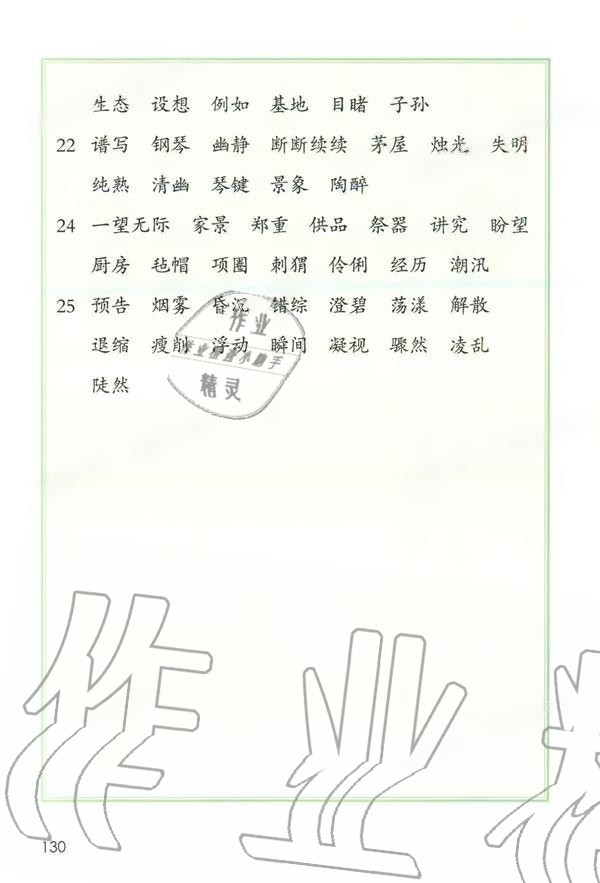 生态 设想 例如 基地 目睹 子孙
22 谱写 钢琴 幽静 断断续续 茅屋 烛光 失明
纯熟 清幽 琴键 景象 陶醉
24 一望无际 家景 郑重 供品 祭器 讲究 盼望
厨房 毡帽 项圈 刺猬 伶俐 经历 潮汛
25 预告 烟雾 昏沉 错综 澄碧 荡漾 解散
退缩 瘦削 浮动 瞬间 凝视 骤然 凌乱
陡然
作业
作业检查小助手
精灵
作业
130